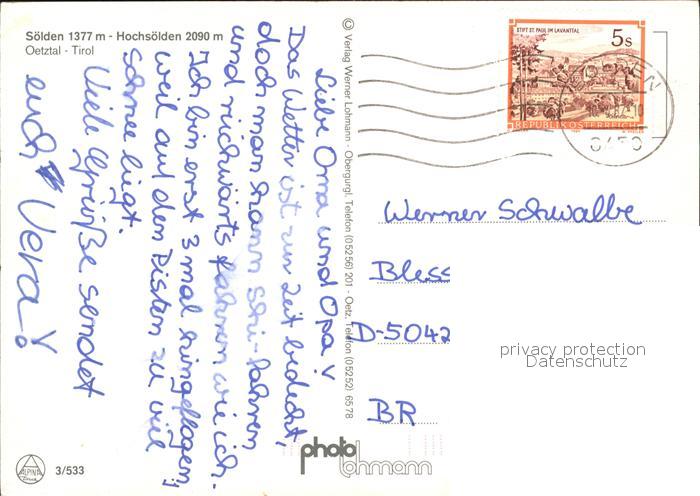 Sölden 1377 m - Hochsölden 2090 m
Oetztal - Tirol
Liebe Oma und Opa!
Das Wetter ist zur Zeit bedeckt,
doch man kann Ski-fahren
und rückwärts fahren wie ich.
Ich bin erst 3 mal hingeflogen,
weil auf den Pisten zu viel
schnee liegt.
Viele Grüße sendet
euch Vera!
© Verlag Werner Lohmann - Obergurgl, Telefon (05256) 201 - Oetz, Telefon (05252) 6578
STIFT ST. PAUL IM LAVANTTAL
5 S
REPUBLIK ÖSTERREICH
6450
Werner Schwalbe
Bless
D-5042
BR
privacy protection
Datenschutz
photo
lohmann
ALPINA
3/533